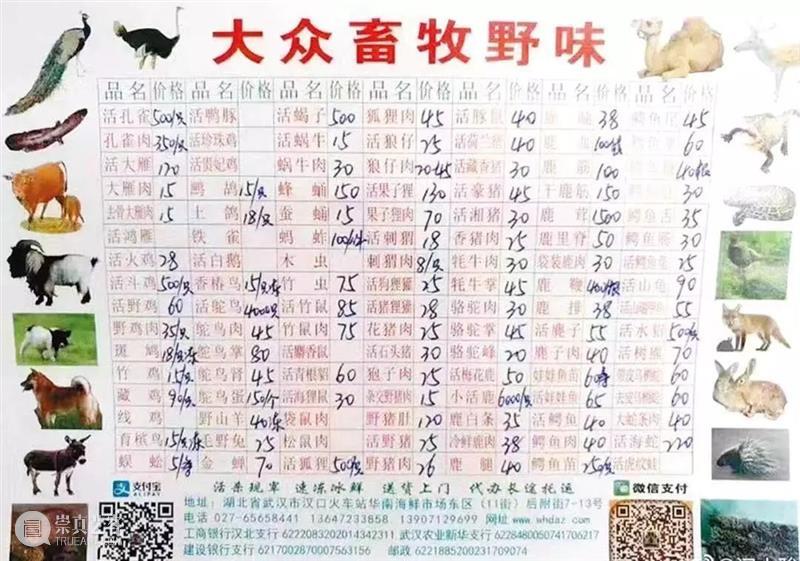 大众畜牧野味
品名 价格 品名 价格 品名 价格 品名 价格 品名 价格 品名 价格 品名 价格
活孔雀 500/只 活鸭豚 活蝎子 500 狐狸肉 45 活豚鼠 40 38 45
孔雀肉 350/只 活珍珠鸡 活蜗牛 15 活狼仔 25 活荷兰猪 40 60
活大雁 120 活贵妃鸡 蜗牛肉 30 狼仔肉 活藏香猪 30 鹿筋 100
大雁肉 15 鹧鸪 15/只 蜂蛹 150 活果子狸 130 活豪猪 45 干鹿筋 150 30
去骨大雁肉 15 土鸽 18/只 蚕蛹 15 果子狸肉 70 活湘猪 30 鹿茸 1500 鳄鱼舌 35
活鸿雁 铁雀 蚂蚱 活刺猬 18 香猪肉 25 鹿里脊 50 30
活火鸡 28 活白鹅 木虫 刺猬肉 8/只 牦牛肉 30 袋装鹿肉 30 25
活斗鸡 500/只 香椿鸟 竹虫 75 活狗狸獾 25 牦牛掌 45 鹿鞭 活山龟 90
活野鸡 60 活鸵鸟 4000/只 活竹鼠 85 活猪狸獾 28 骆驼肉 30 鹿排 38 55
野鸡肉 35/只 鸵鸟肉 45 竹鼠肉 75 花猪肉 25 骆驼掌 45 活鹿子 55 活水貂
斑鸠 鸵鸟掌 80 活麝香鼠 活石头猪 30 骆驼峰 20 鹿子肉 40 活树熊 70
竹鸡 15/只 鸵鸟肾 45 活青根貂 60 狍子肉 25 活梅花鹿 50 娃娃鱼苗 60
藏鸡 鸵鸟蛋 150/个 活海狸鼠 30 杂交野猪肉 15 小活鹿 6000/只 活娃娃鱼 65 60
线鸡 野山羊 袋鼠肉 野猪肚 120 鹿白条 35 活鳄鱼 40 大蛇条肉 40
育槟鸟 白野兔 25 松鼠肉 活野猪 25 冷鲜鹿肉 38 鳄鱼肉 40 活海蛇 220
蜈蚣 金蝉 70 活狐狸 500/只 野猪肉 26 鹿腿 40 鳄鱼苗 活虎纹蛙
支付宝 ALIPAY 活杀现宰 速冻冰鲜 送货上门 代办长途托运 微信支付
地址：湖北省武汉市汉口火车站华南海鲜市场东区（11街）后附街7-13号
电话：027-65658441 13647233858 13907129699 网址 www.whdaz.com
工商银行汉北支行 6222083202014342311 武汉农业新华支行 6228480050741706217
建设银行支行 6217002870007563156 邮政 6221885200231709074
崇真艺客